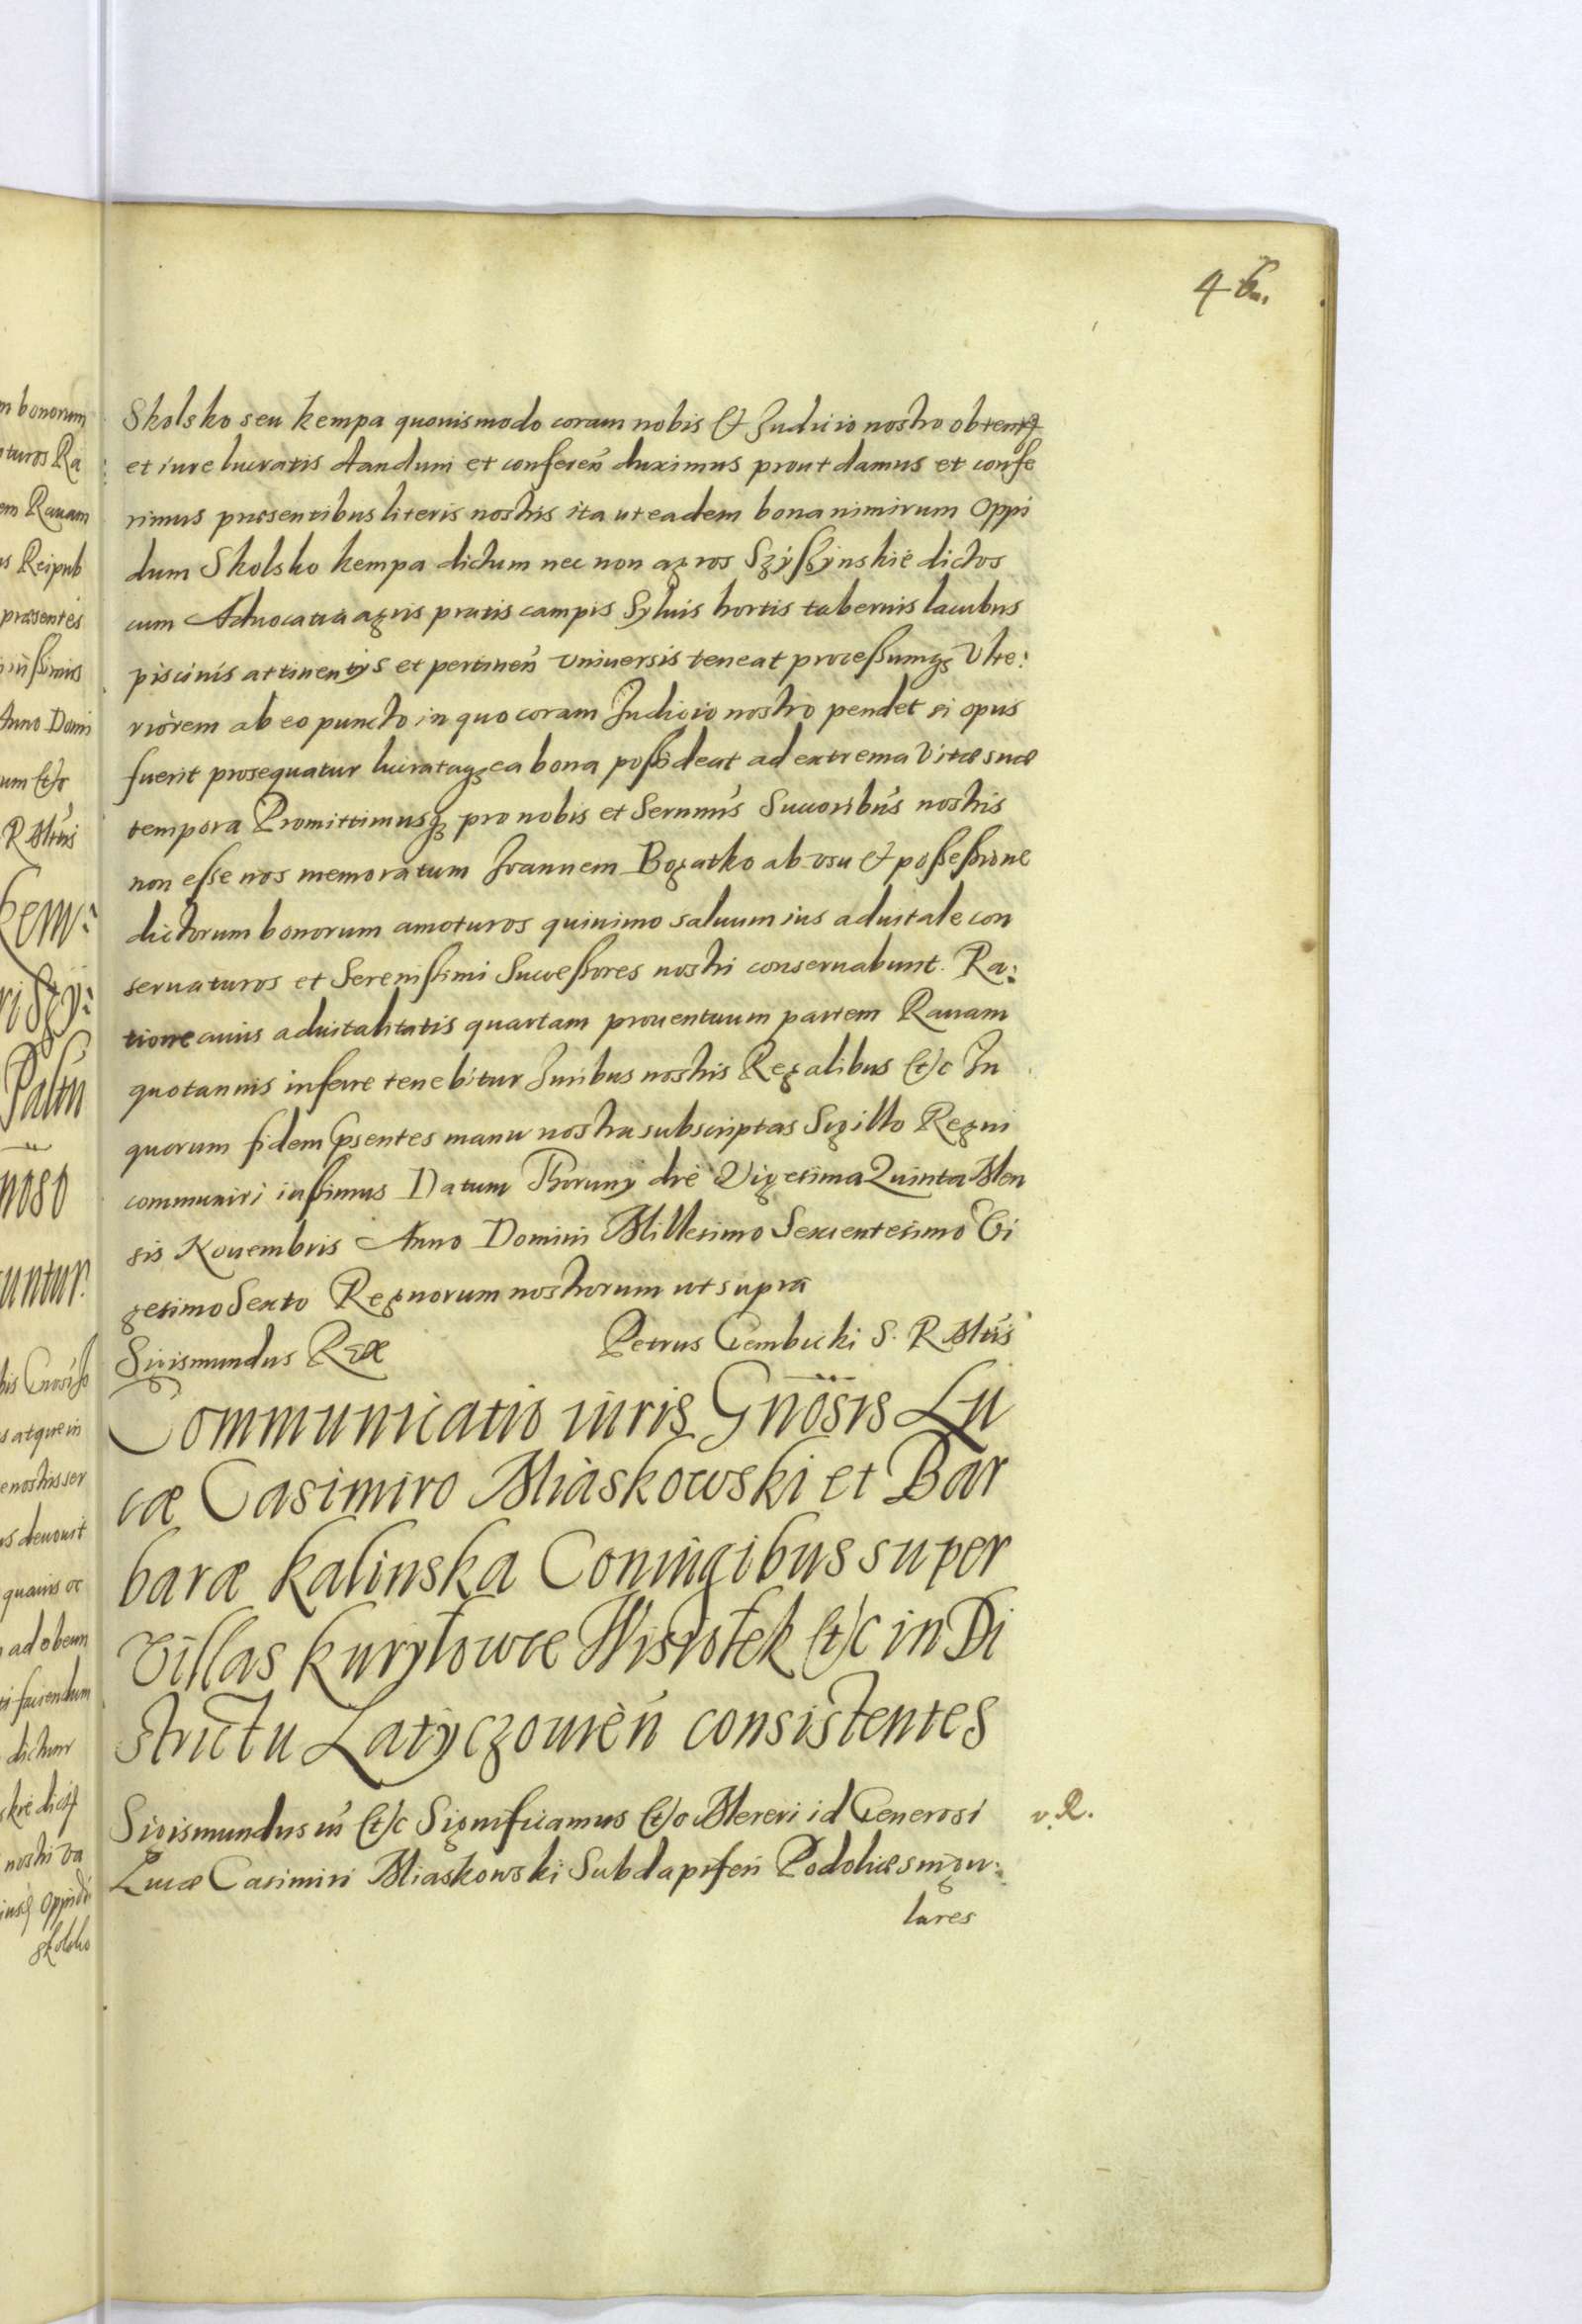 46.
Skolsko seu kempa quouismodo coram nobis & Judicio nostro obtent
et iure lucratis dandum et conferen̄ duximus prout damus et confe
rimus præsentibus literis nostris ita ut eadem bona nimirum Oppi
dum Skolsko kempa dictum nec non agros dictos
cum Aduocatia agris pratis campis Syluis hortis tabernis lacubus
piscinis attinentys et pertinen̄ Vniuersis teneat processumqȝ Vlte:
riorem ab eo puncto in quo coram Judicio nostro pendet si opus
fuerit prosequatur lucrataqȝ ea bona possideat ad extrema Vitæ suæ
tempora Promittimusqȝ pro nobis et Sernmis Succoribus nostris
non esse nos memoratum Joannem Bogatko ab vsu & possessione
dictorum bonorum amoturos quinimo saluum ius aduitale con
seruaturos et Serenissimi Successores nostri conseruabunt. Ra:
tione cuius aduitalitatis quartam prouentuum partem Rauam
quotannis inferre tenebitur Juribus nostris Regalibus &c In
quorum fidem psentes manu nostra subscriptas Sigillo Regni
communiri iussimus Datum Thoruny die Vigesima Quinta Men
sis Nouembris Anno Domini Millesimo Sexcentesimo Vi
gesimo Sexto Regnorum nostrorum ut supra
Sigismundus Rex Petrus Gembicki S. R. Mtis
Communicatio iuris Gnosis Lu
cæ Casimiro Miaskowski et Bar
baræ kalinska Coniugibus super
Villas kuryłowce Wisiołek &c in Di
strictu Latyczouien̄ consistentes
Sigismundus &c Significamus &c Mereri id Generosi
v. R.
Lucæ Casimiri Miaskowski Subdapiferi Podoliæ singu:
lares
m bonorum
oturos Ra
em Rauam
us Reipub
præsentes
Anno Domi
um &c
R Mtis
kem:
Palin
noso
untur.
s atque in
e nostris ser
us deuouit
quauis oc
ad obeun
ti faciendum
dictum
nostri va
Oppidi
skolsko